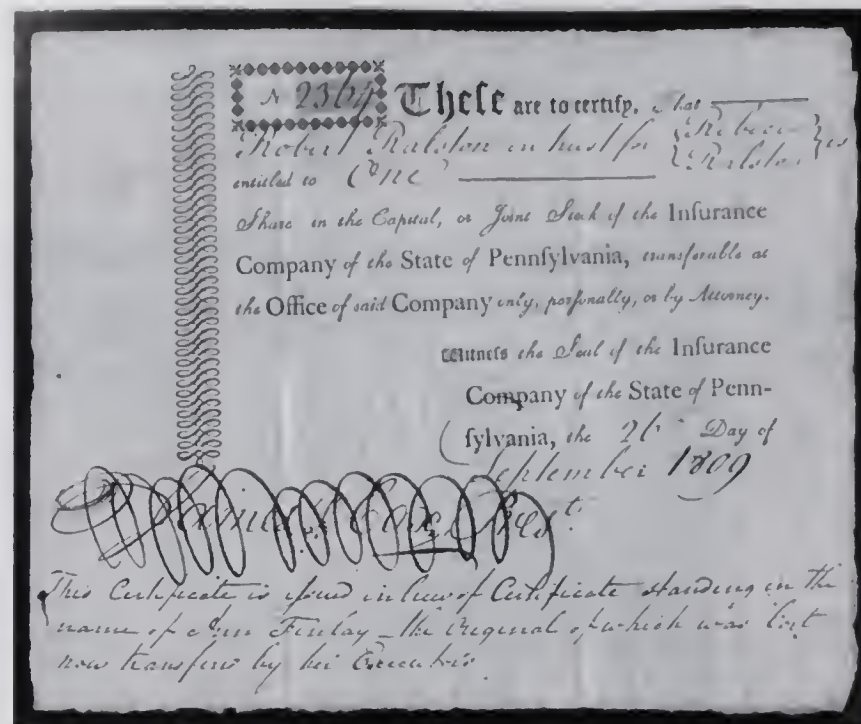 N 2364 Theſe are to certify, That
Robert Ralston in trust for {Rebecca Ralston} is
entitled to One
Share in the Capital, or Joint Stock of the Inſurance
Company of the State of Pennſylvania, transferable at
the Office of said Company only, perſonally, or by Attorney.
Witneſs the Seal of the Inſurance
Company of the State of Penn-
ſylvania, the 26 Day of
September 1809
James S. Cox, Prest.
This Certificate is iſsued in lieu of Certificate standing in the
name of Ann Finlay – the Original of which was lost
now transfered by her Executors.